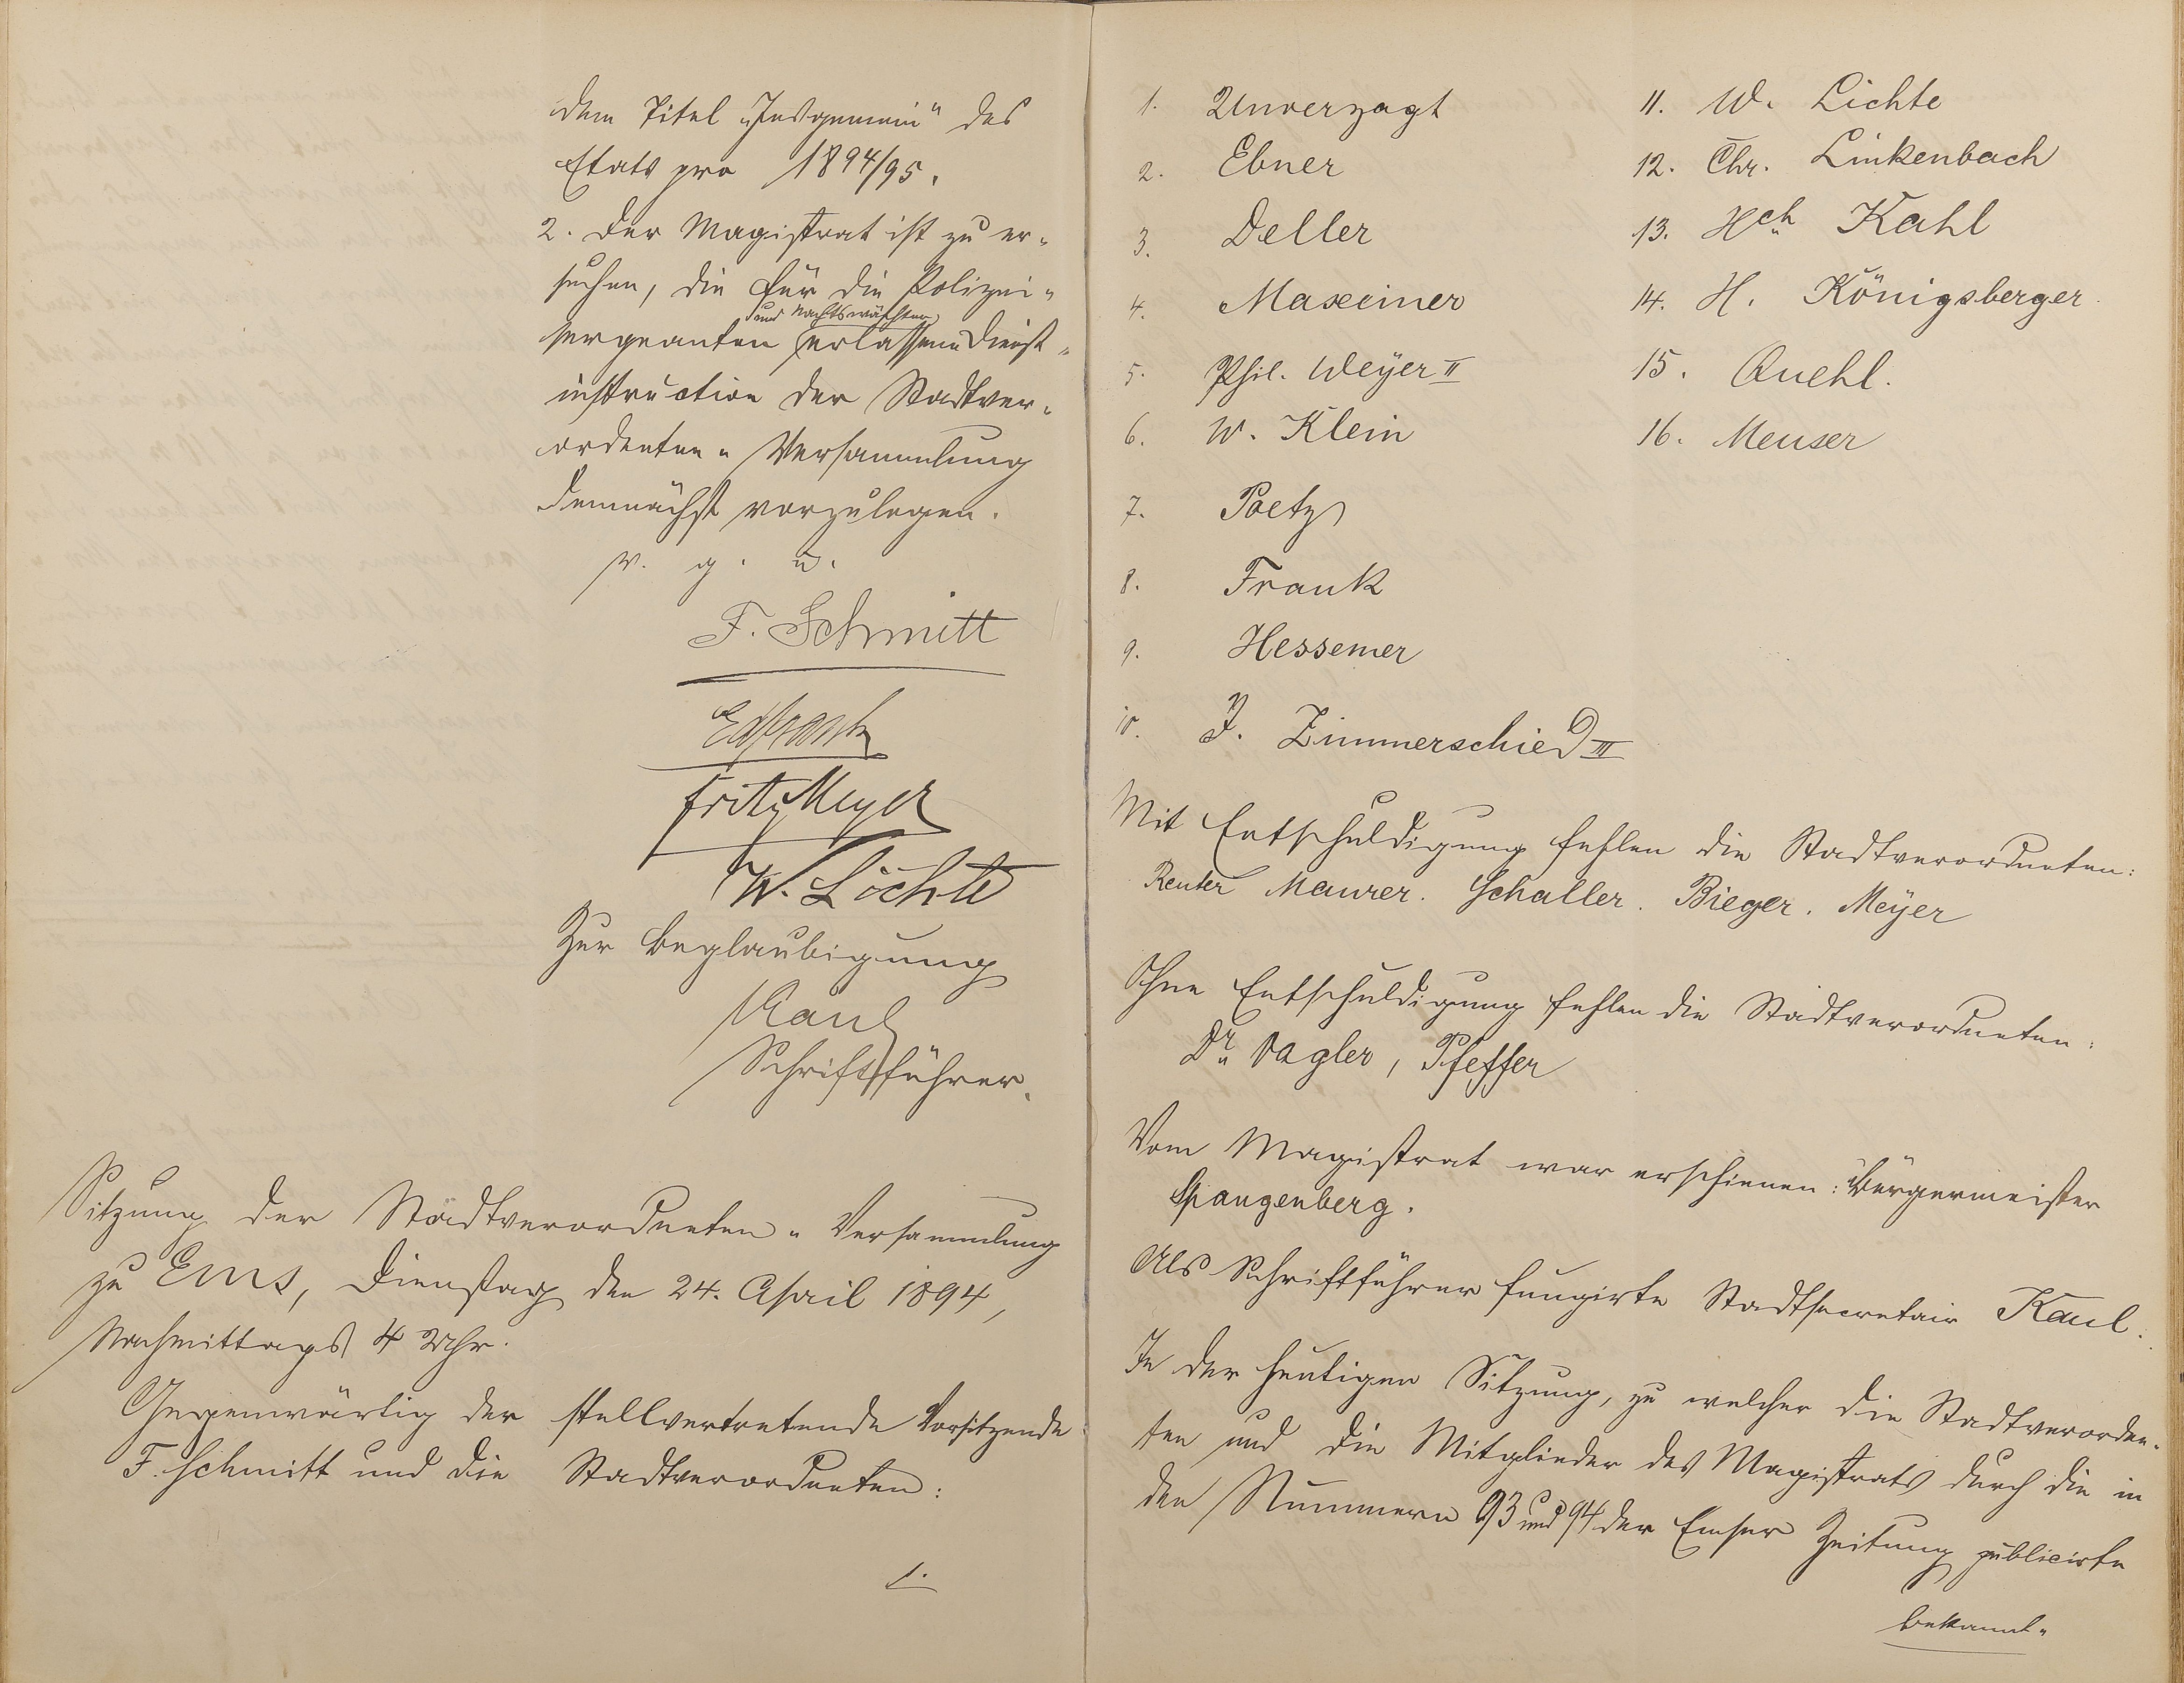 dem Titel „Insgemein" des
Etats pro 1894/95.
2. Der Magistrat ist zu er-
suchen, die für die Polizei-
und Nachtswächter
sergeanten erlassene Dienst-
instruction der Stadtver-
ordneten-Versammlung
demnächst vorzulegen.
v. g. u.
F. Schmitt
Ed Frank
Fritz Meyer
W. Lichte
Zur Beglaubigung
Kaul
Schriftführer.
Sitzung der Stadtverordneten-Versammlung
zu Ems, Dienstag den 24. April 1894,
Nachmittags 4 Uhr.
Gegenwärtig der stellvertretende Vorsitzende
F. Schmitt und die Stadtverordneten:
1.
1. Unverzagt
2. Ebner
3. Deller
4. Maxeiner
5. Phil. Weyer II
6. W. Klein
7. Poetz
8. Frank
9. Hessemer
10. J. Zimmerschied III
11. W. Lichte
12. Chr. Linkenbach
13. Hch Kahl
14. H. Königsberger
15. Quehl.
16. Meuser
Mit Entschuldigung fehlen die Stadtverordneten:
Reuter Maurer. Schaller. Bieger. Meyer
Ohne Entschuldigung fehlen die Stadtverordneten:
Dr. Vogler, Pfeffer
Vom Magistrat war erschienen: Bürgermeister
Spangenberg.
Als Schriftführer fungirte Stadtsecretair Kaul.
In der heutigen Sitzung, zu welcher die Stadtverordne-
ten und die Mitglieder des Magistrats durch die in
den Nummern 93 und 94 der Emser Zeitung publicirte
bekannt-